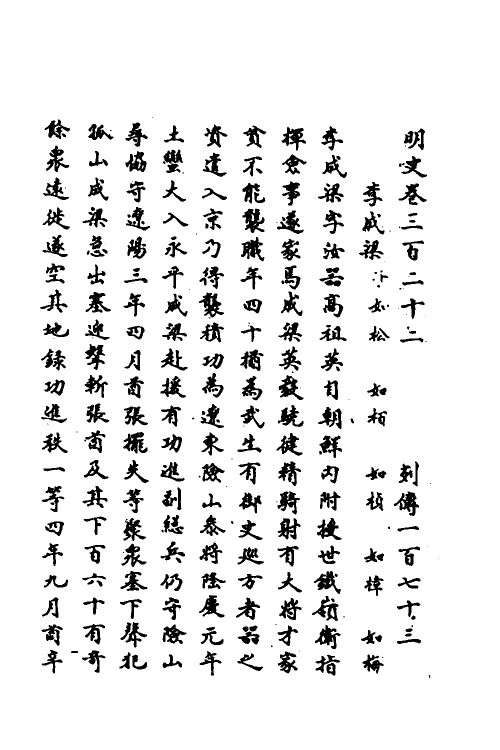 明史卷三百二十二　列傳一百七十三
李成梁 子如松 如栢 如楨 如樟 如梅
李成梁字汝器高祖英自朝鮮内附授世鐵嶺衛指
揮僉事遂家焉成梁英毅驍健精騎射有大將才家
貧不能襲職年四十猶為武生有御史廵方者器之
資遣入京乃得襲積功為遼東險山叅將隆慶元年
土蠻大入永平成梁赴援有功進副總兵仍守險山
尋協守遼陽三年四月酋張擺失等聚衆塞下聲犯
孤山成梁急出塞迎擊斬張酋及其下百六十有奇
餘衆遠徙遂空其地錄功進秩一等四年九月酋辛